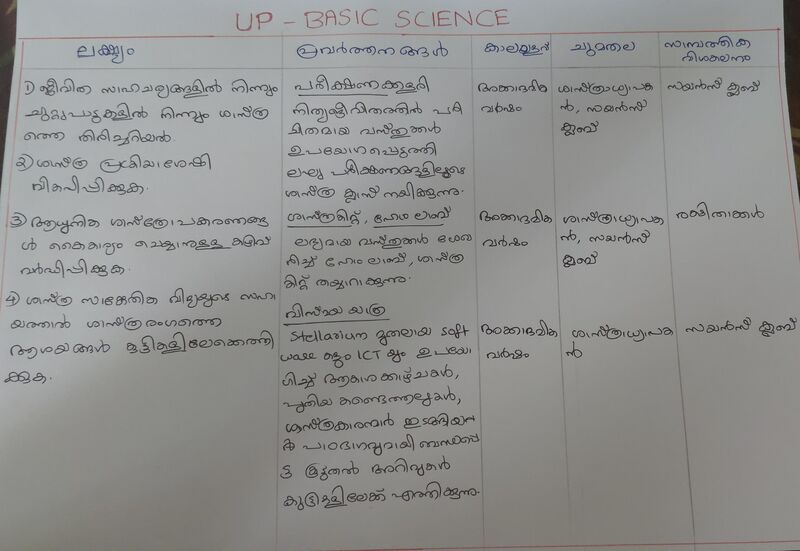 UP - BASIC SCIENCE
ലക്ഷ്യം
പ്രവർത്തനങ്ങൾ
കാലയളവ്
ചുമതല
സാമ്പത്തിക
വിശകലനം
1) ജീവിത സാഹചര്യങ്ങളിൽ നിന്നും
ചുറ്റുപാടുകളിൽ നിന്നും ശാസ്ത്ര
ത്തെ തിരിച്ചറിയൽ.
2) ശാസ്ത്ര പ്രക്രിയാശേഷി
വികസിപ്പിക്കുക.
3) ആധുനിക ശാസ്ത്രോപകരണങ്ങ
ൾ കൈകാര്യം ചെയ്യാനുള്ള കഴിവ്
വർദ്ധിപ്പിക്കുക.
4) ശാസ്ത്ര സാങ്കേതിക വിദ്യയുടെ സഹാ
യത്താൽ ശാസ്ത്രരംഗത്തെ
ആശയങ്ങൾ കുട്ടികളിലേക്കെത്തി
ക്കുക.
പരീക്ഷണക്കളരി
നിത്യജീവിതത്തിൽ പരി
ചിതമായ വസ്തുക്കൾ
ഉപയോഗപ്പെടുത്തി
ലഘു പരീക്ഷണങ്ങളിലൂടെ
ശാസ്ത്ര ക്ലാസ് നയിക്കുന്നു.
അക്കാദമിക
വർഷം
ശാസ്ത്രാധ്യാപക
ൻ, സയൻസ്
ക്ലബ്
സയൻസ് ക്ലബ്
ശാസ്ത്രകിറ്റ്, ഹോം ലാബ്
ലഭ്യമായ വസ്തുക്കൾ ശേഖ
രിച്ച് ഹോം ലാബ്, ശാസ്ത്ര
കിറ്റ് തയ്യാറാക്കുന്നു.
അക്കാദമിക
വർഷം
ശാസ്ത്രാധ്യാപക
ൻ, സയൻസ്
ക്ലബ്
രക്ഷിതാക്കൾ
വിസ്മയ യാത്ര
Stellarium മുതലായ soft
ware കളും ICT യും ഉപയോ
ഗിച്ച് ആകാശക്കാഴ്ചകൾ,
പുതിയ കണ്ടെത്തലുകൾ,
ശാസ്ത്രകാരന്മാർ തുടങ്ങിയവ
പാഠഭാഗവുമായി ബന്ധപ്പെ
ട്ട കൂടുതൽ അറിവുകൾ
കുട്ടികളിലേക്ക് എത്തിക്കുന്നു.
അക്കാദമിക
വർഷം
ശാസ്ത്രാധ്യാപക
ൻ
സയൻസ് ക്ലബ്